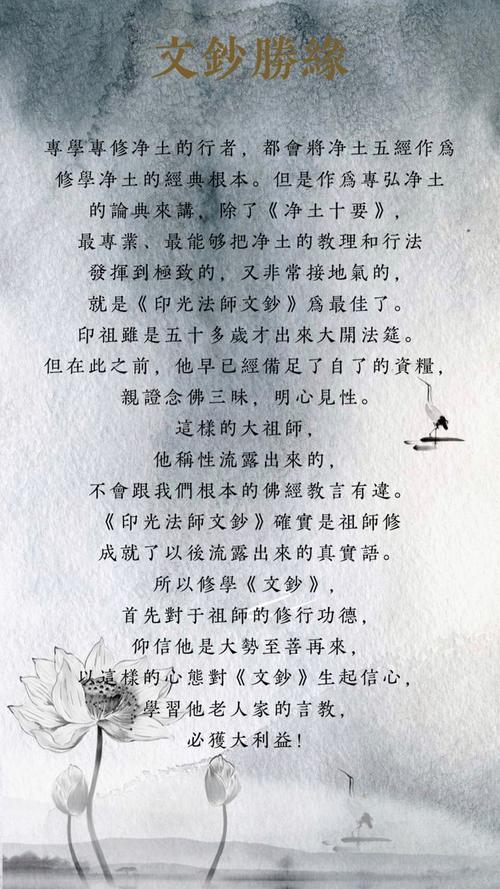 文鈔勝緣
專學專修净土的行者，都會將净土五經作爲
修學净土的經典根本。但是作爲專弘净土
的論典來講，除了《净土十要》，
最專業、最能够把净土的教理和行法
發揮到極致的，又非常接地氣的，
就是《印光法師文鈔》爲最佳了。
印祖雖是五十多歲才出來大開法筵。
但在此之前，他早已經備足了自了的資糧，
親證念佛三昧，明心見性。
這樣的大祖師，
他稱性流露出來的，
不會跟我們根本的佛經教言有違。
《印光法師文鈔》確實是祖師修
成就了以後流露出來的真實語。
所以修學《文鈔》，
首先對于祖師的修行功德，
仰信他是大勢至菩再來，
以這樣的心態對《文鈔》生起信心，
學習他老人家的言教，
必獲大利益！